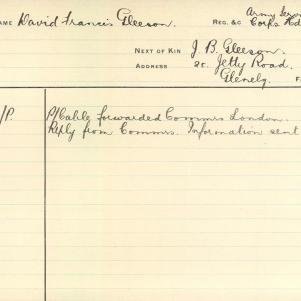 NAME David Francis Gleeson. REG. &C Army Serv
Corps Hd
NEXT OF KIN J. B. Gleeson.
ADDRESS 20. Jetty Road.
Glenelg.
/P. P/Cable forwarded Commrs London.
Reply from Commrs. Information sent